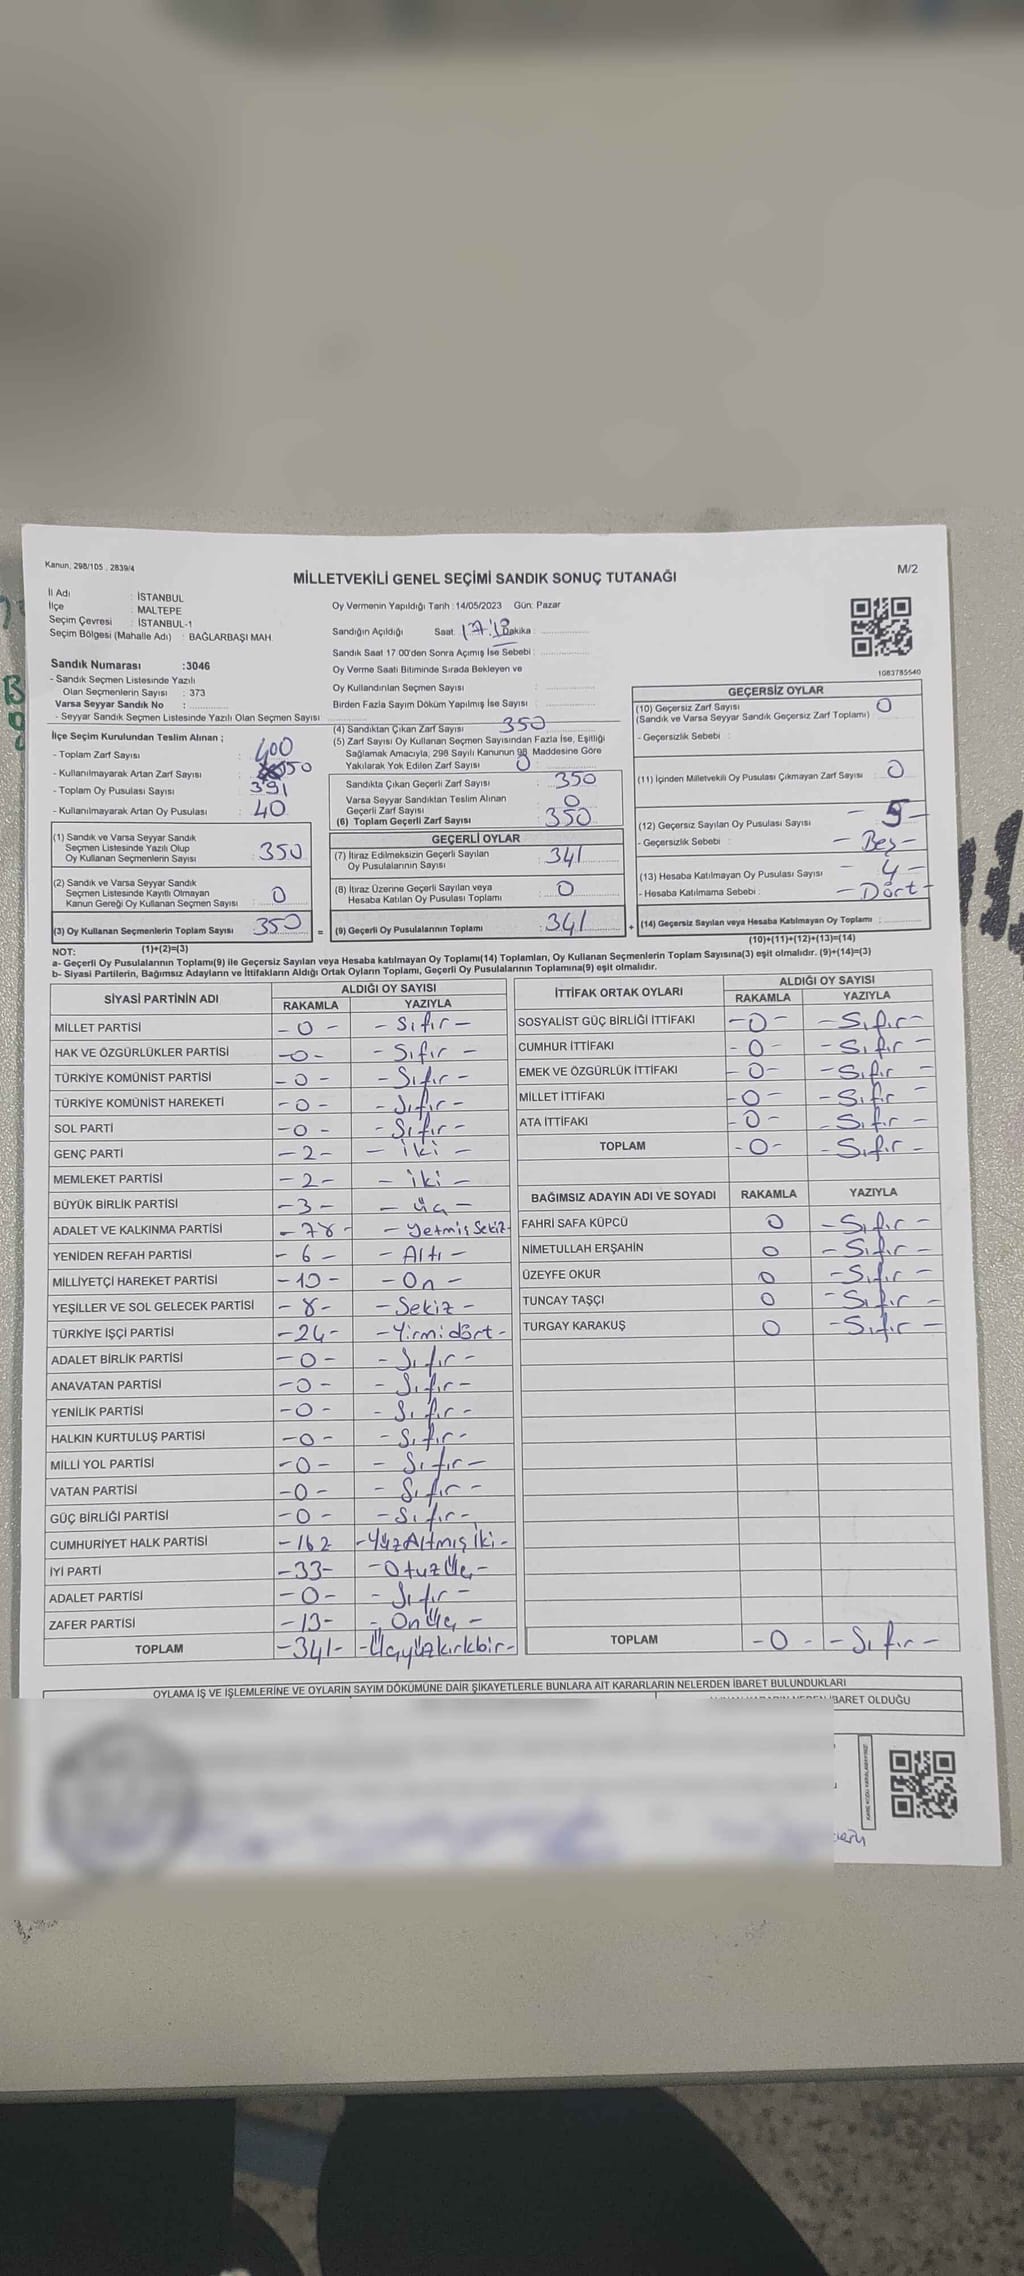 Kanun, 298/105 , 2839/4
MİLLETVEKİLİ GENEL SEÇİMİ SANDIK SONUÇ TUTANAĞI
M/2
İl Adı : İSTANBUL
İlçe : MALTEPE
Seçim Çevresi : İSTANBUL-1
Seçim Bölgesi (Mahalle Adı) : BAĞLARBAŞI MAH.
Oy Vermenin Yapıldığı Tarih :14/05/2023 Gün: Pazar
Sandığın Açıldığı Saat: 17:18 Dakika :
Sandık Saat 17:00'den Sonra Açımış İse Sebebi :
Oy Verme Saati Bitiminde Sırada Bekleyen ve
Oy Kullandırılan Seçmen Sayısı :
Birden Fazla Sayım Döküm Yapılmış İse Sayısı :
1083785540
Sandık Numarası :3046
- Sandık Seçmen Listesinde Yazılı
Olan Seçmenlerin Sayısı : 373
Varsa Seyyar Sandık No :
- Seyyar Sandık Seçmen Listesinde Yazılı Olan Seçmen Sayısı :
İlçe Seçim Kurulundan Teslim Alınan ;
- Toplam Zarf Sayısı : 400
- Kullanılmayarak Artan Zarf Sayısı : 50
- Toplam Oy Pusulası Sayısı : 391
- Kullanılmayarak Artan Oy Pusulası : 40
(1) Sandık ve Varsa Seyyar Sandık
Seçmen Listesinde Yazılı Olup
Oy Kullanan Seçmenlerin Sayısı : 350
(2) Sandık ve Varsa Seyyar Sandık
Seçmen Listesinde Kayıtlı Olmayan
Kanun Gereği Oy Kullanan Seçmen Sayısı : 0
(3) Oy Kullanan Seçmenlerin Toplam Sayısı : 350 =
(1)+(2)=(3)
(4) Sandıktan Çıkan Zarf Sayısı : 350
(5) Zarf Sayısı Oy Kullanan Seçmen Sayısından Fazla İse, Eşitliği
Sağlamak Amacıyla, 298 Sayılı Kanunun 98. Maddesine Göre
Yakılarak Yok Edilen Zarf Sayısı : 0
Sandıkta Çıkan Geçerli Zarf Sayısı : 350
Varsa Seyyar Sandıktan Teslim Alınan
Geçerli Zarf Sayısı : 0
(6) Toplam Geçerli Zarf Sayısı : 350
GEÇERLİ OYLAR
(7) İtiraz Edilmeksizin Geçerli Sayılan
Oy Pusulalarının Sayısı : 341
(8) İtiraz Üzerine Geçerli Sayılan veya
Hesaba Katılan Oy Pusulası Toplamı : 0
(9) Geçerli Oy Pusulalarının Toplamı : 341 +
GEÇERSİZ OYLAR
(10) Geçersiz Zarf Sayısı : 0
(Sandık ve Varsa Seyyar Sandık Geçersiz Zarf Toplamı)
- Geçersizlik Sebebi :
(11) İçinden Milletvekili Oy Pusulası Çıkmayan Zarf Sayısı : 0
(12) Geçersiz Sayılan Oy Pusulası Sayısı : - 5 -
- Geçersizlik Sebebi : - Beş -
(13) Hesaba Katılmayan Oy Pusulası Sayısı : - 4 -
- Hesaba Katılmama Sebebi : - Dört -
(14) Geçersiz Sayılan veya Hesaba Katılmayan Oy Toplamı :
(10)+(11)+(12)+(13)=(14)
NOT:
a- Geçerli Oy Pusulalarının Toplamı(9) ile Geçersiz Sayılan veya Hesaba katılmayan Oy Toplamı(14) Toplamları, Oy Kullanan Seçmenlerin Toplam Sayısına(3) eşit olmalıdır. (9)+(14)=(3)
b- Siyasi Partilerin, Bağımsız Adayların ve İttifakların Aldığı Ortak Oyların Toplamı, Geçerli Oy Pusulalarının Toplamına(9) eşit olmalıdır.
SİYASİ PARTİNİN ADI ALDIĞI OY SAYISI
RAKAMLA YAZIYLA
MİLLET PARTİSİ - 0 - - Sıfır -
HAK VE ÖZGÜRLÜKLER PARTİSİ - 0 - - Sıfır -
TÜRKİYE KOMÜNİST PARTİSİ - 0 - - Sıfır -
TÜRKİYE KOMÜNİST HAREKETİ - 0 - - Sıfır -
SOL PARTİ - 0 - - Sıfır -
GENÇ PARTİ - 2 - - iki -
MEMLEKET PARTİSİ - 2 - - iki -
BÜYÜK BİRLİK PARTİSİ - 3 - - üç -
ADALET VE KALKINMA PARTİSİ - 78 - - Yetmiş Sekiz -
YENİDEN REFAH PARTİSİ - 6 - - Altı -
MİLLİYETÇİ HAREKET PARTİSİ - 10 - - On -
YEŞİLLER VE SOL GELECEK PARTİSİ - 8 - - Sekiz -
TÜRKİYE İŞÇİ PARTİSİ - 24 - - Yirmi dört -
ADALET BİRLİK PARTİSİ - 0 - - Sıfır -
ANAVATAN PARTİSİ - 0 - - Sıfır -
YENİLİK PARTİSİ - 0 - - Sıfır -
HALKIN KURTULUŞ PARTİSİ - 0 - - Sıfır -
MİLLİ YOL PARTİSİ - 0 - - Sıfır -
VATAN PARTİSİ - 0 - - Sıfır -
GÜÇ BİRLİĞİ PARTİSİ - 0 - - Sıfır -
CUMHURİYET HALK PARTİSİ - 162 - Yüz Altmış iki -
İYİ PARTİ - 33 - - Otuz Üç -
ADALET PARTİSİ - 0 - - Sıfır -
ZAFER PARTİSİ - 13 - - On Üç -
TOPLAM - 341 - - Üçyüzkırkbir -
İTTİFAK ORTAK OYLARI ALDIĞI OY SAYISI
RAKAMLA YAZIYLA
SOSYALİST GÜÇ BİRLİĞİ İTTİFAKI - 0 - - Sıfır -
CUMHUR İTTİFAKI - 0 - - Sıfır -
EMEK VE ÖZGÜRLÜK İTTİFAKI - 0 - - Sıfır -
MİLLET İTTİFAKI - 0 - - Sıfır -
ATA İTTİFAKI - 0 - - Sıfır -
TOPLAM - 0 - - Sıfır -
BAĞIMSIZ ADAYIN ADI VE SOYADI RAKAMLA YAZIYLA
FAHRİ SAFA KÜPCÜ 0 - Sıfır -
NİMETULLAH ERŞAHİN 0 - Sıfır -
ÜZEYFE OKUR 0 - Sıfır -
TUNCAY TAŞÇI 0 - Sıfır -
TURGAY KARAKUŞ 0 - Sıfır -
TOPLAM - 0 - - Sıfır -
OYLAMA İŞ VE İŞLEMLERİNE VE OYLARIN SAYIM DÖKÜMÜNE DAİR ŞİKAYETLERLE BUNLARA AİT KARARLARIN NELERDEN İBARET BULUNDUKLARI
İBARET OLDUĞU